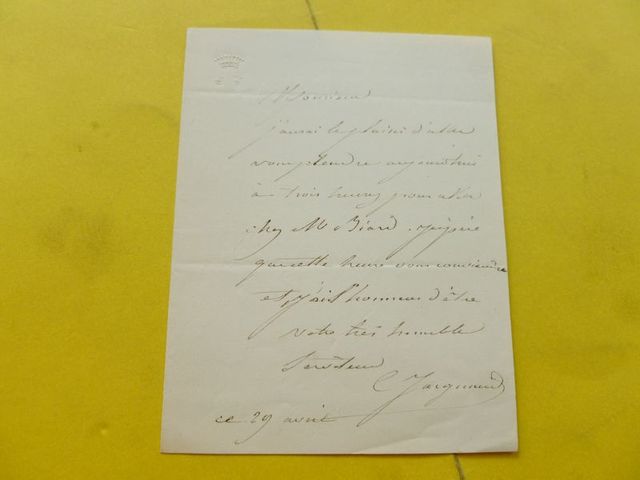 Monsieur
j'aurai le plaisir d'aller
vous prendre aujourd'hui
à trois heures pour aller
chez Mr Biard. j'espère
que cette heure vous conviendra
et j'ai l'honneur d'être
votre très humble
serviteur
Jacquand
ce 29 avril